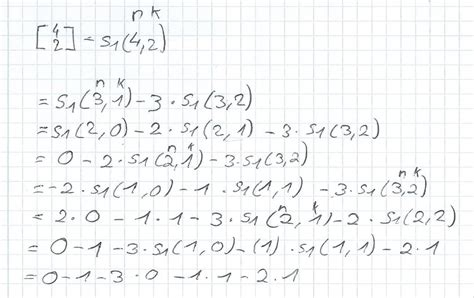 n k
[4 2] = S1(4,2)
n k
= S1(3,1) - 3 · S1(3,2)
= S1(2,0) - 2 · S1(2,1) - 3 · S1(3,2)
n k
= 0 - 2 · S1(2,1) - 3 · S1(3,2)
n k
= -2 · S1(1,0) - 1 · S1(1,1) - 3 · S1(3,2)
n k
= 2 · 0 - 1 · 1 - 3 · S1(2,1) - 2 · S1(2,2)
= 0 - 1 - 3 · S1(1,0) - (1) · S1(1,1) - 2 · 1
= 0 - 1 - 3 · 0 - 1 · 1 - 2 · 1